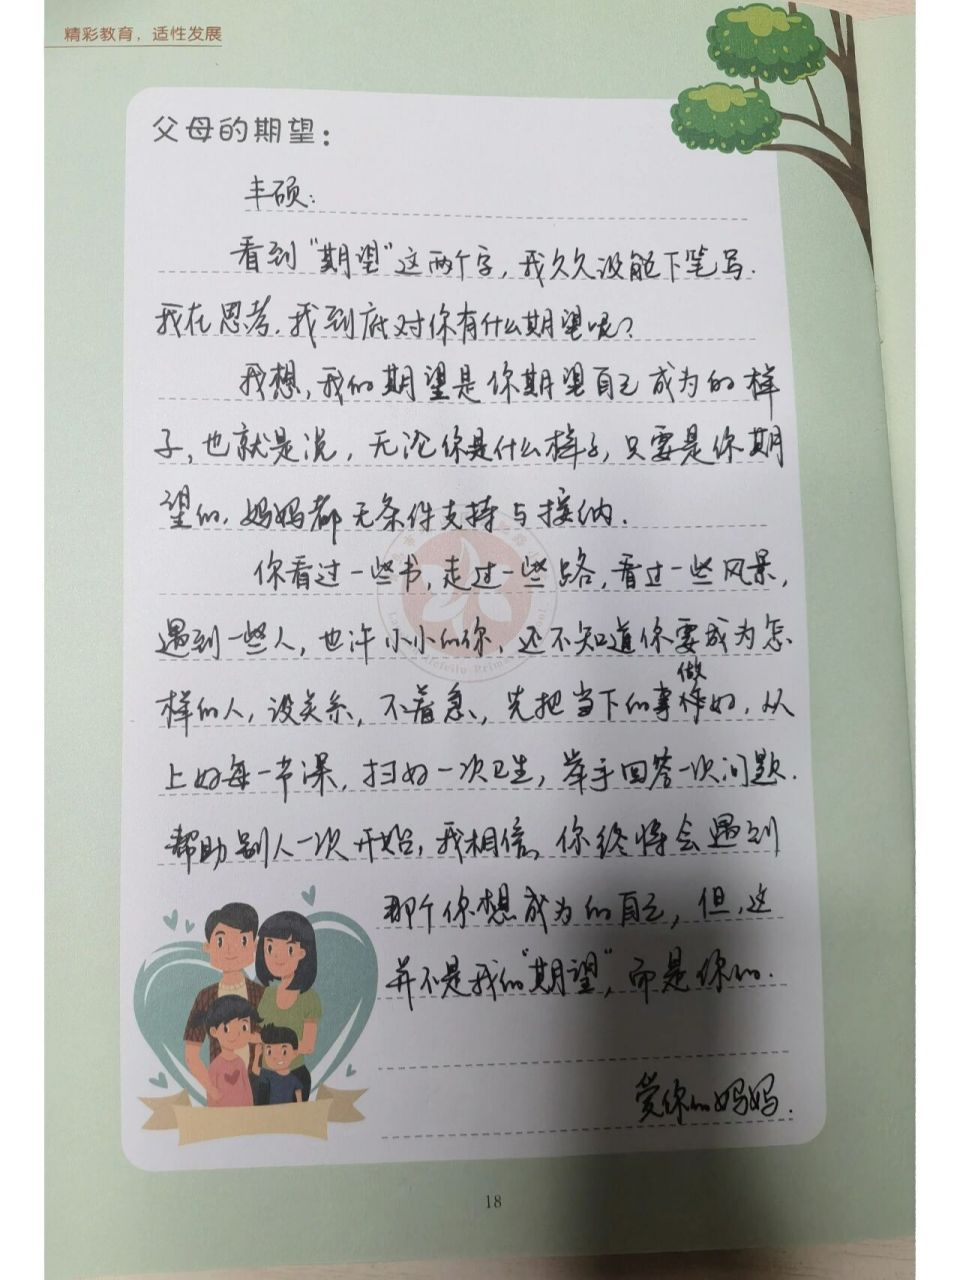 精彩教育，适性发展
父母的期望：
丰硕：
看到“期望”这两个字，我久久没能下笔写.
我在思考.我到底对你有什么期望呢？
我想，我的期望是你期望自己成为的样
子，也就是说，无论你是什么样子，只要是你期
望的，妈妈都无条件支持与接纳.
你看过一些书，走过一些路，看过一些风景，
遇到一些人，也许小小的你，还不知道你要成为怎
样的人，没关系，不着急，先把当下的事做好，从
上好每一节课，扫好一次卫生，举手回答一次问题.
帮助别人一次开始，我相信，你终将会遇到
那个你想成为的自己，但，这
并不是我的“期望”，而是你的.
爱你的妈妈.
18